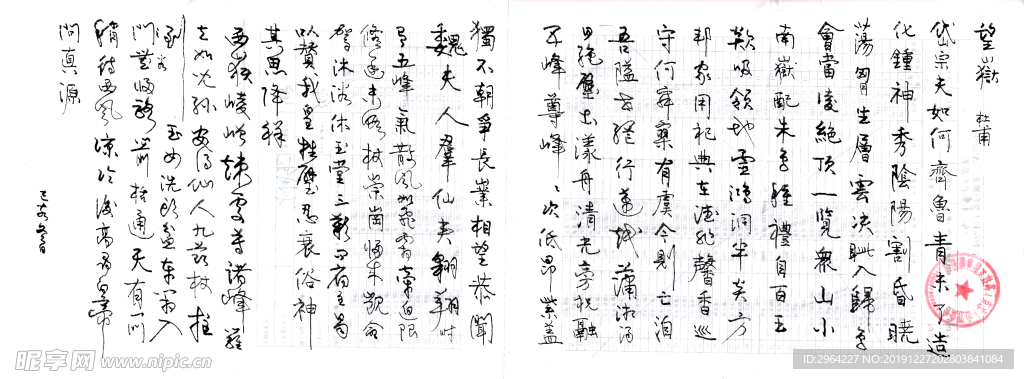 望嶽 杜甫
岱宗夫如何齊魯青未了造
化鍾神秀陰陽割昏曉
蕩胷生層雲决眦入歸鳥
會當凌絕頂一覽衆山小
南嶽配朱鳥秩禮自百王
欻吸領地靈鴻洞半炎方
邦家用祀典在德非馨香巡
守何寂寥有虞今則亡洎
吾隘世網行邁越瀟湘渴
日絕壁出漾舟清光旁祝融
五峰尊峰峰次低昂紫蓋
獨不朝爭長嶪相望恭聞
魏夫人羣仙夾翱翔時
有五峰氣散風如飛霜牽迫限
修途未暇杖崇岡歸來覬命
駕沐浴休玉堂三歎問府主曷
以贊我皇牲璧忍衰俗神
其思降祥
西嶽崚嶒竦處尊諸峰羅
立如兒孫安得仙人九節杖拄
到玉女洗頭盆車箱入
谷無歸路箭栝通天有一門
稍待西風涼冷後高尋白帝
問真源
昵享网 www.nipic.cn
ID:2964227 NO:20191227202803841084